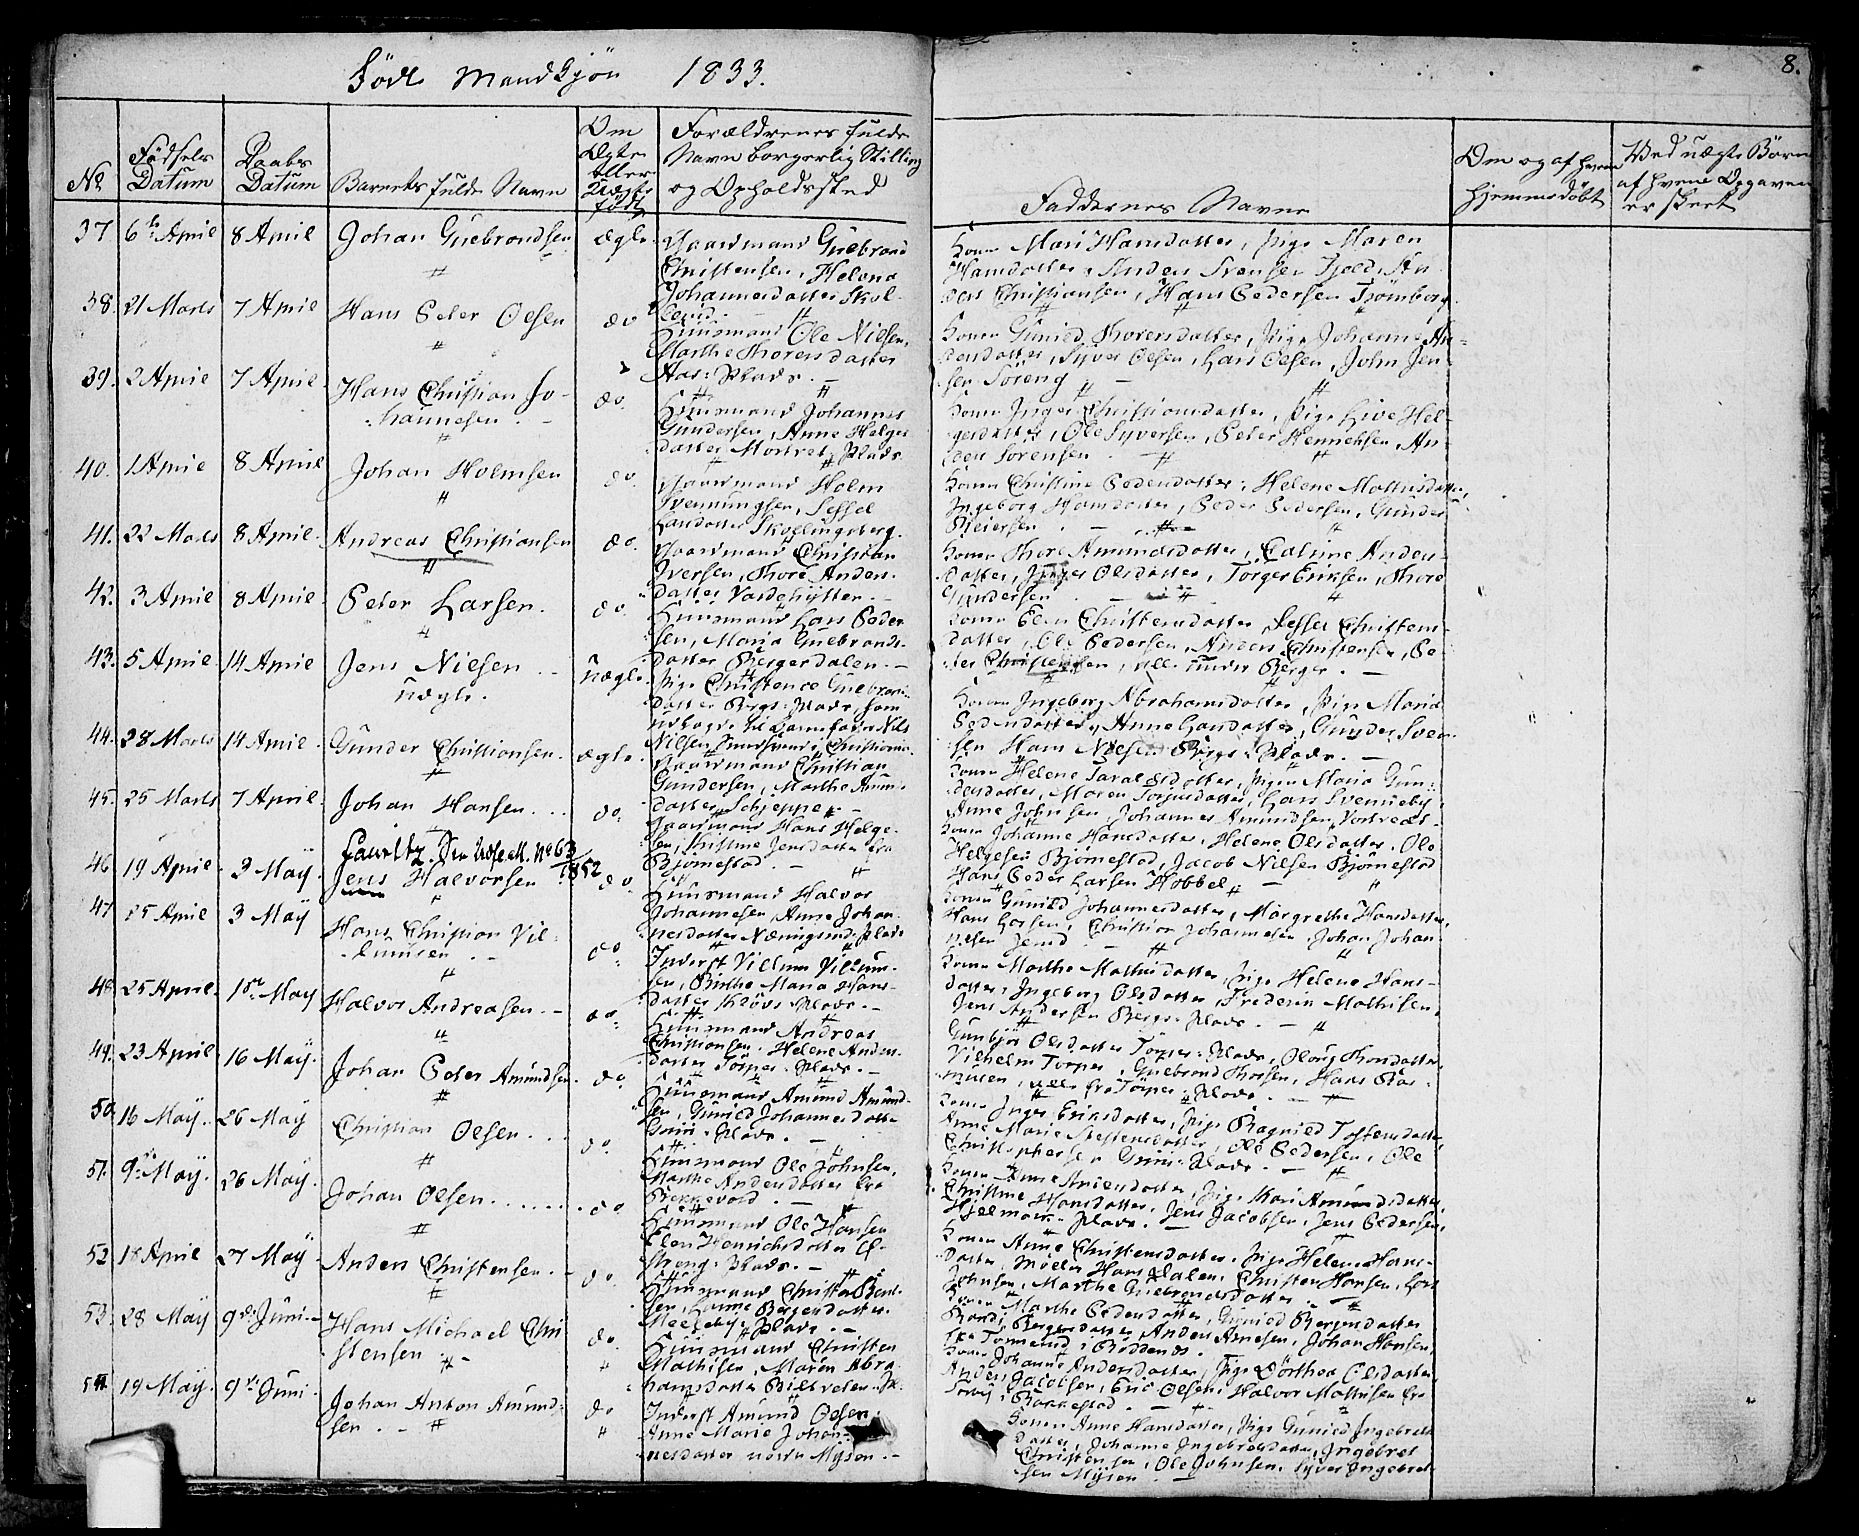 Født Mandkjøn 1833.
8.
No
Fødsels Datum
Daabs Datum
Barnets fulde Navn
Om Ægte eller Uægte født
Forældrenes fulde Navn borgerlig Stilling og Opholdssted
Faddernes Navne
Om og af hvem hjemmedøbt
Ved uægte Børn af hvem Opgaven er skeet
37 6te April 8 April Johan Gulbrandsen ægte
Gaardmand Gulbrand
Christensen, Helena
Johannesdatter
Kone Mari Hansdatter, Pige Maren
Hansdatter, Anders Svensen, An-
ders Christiansen, Hans Pedersen
38. 21 Marts 7 April Hans Peder Olsen do
Huusmand Ole Nilsen,
Marthe Thorersdatter
Aas Plads. -
Kone Gunild Thorersdatter, Pige Johanne An-
dersdatter, Syver Olsen, Lars Olsen, John Jen-
sen Søreng
39. 2 April 7 April Hans Christian Jo-
hannesen. do.
Huusmand Johannes
Gundersen, Anne Helges
datter Plads
Kone Inger Christiansdatter, Pige Live Hel-
gesdatter, Ole Syversen, Peder Henrichsen, An-
ders Sørensen
40. 1 April 8 April Johan Holmsen do.
Gaardmand Holm
Svenningsen, Sessel
Larsdatter
Kone Christine Pedersdatter, Helene Mathisdatter,
Ingeborg Hansdatter, Peder Pedersen, Gunder
Reiersen
41. 22 Marts 8 April. Andreas Christiansen do.
Gaardmand Christian
Iversen, Thore Anders-
datter Vardehytten. -
Kone Thore Amundsdatter, Anders-
datter, Inger Olsdatter, Torger Eriksen, Thore
Gundersen
42. 3 April 8 April Peter Larsen. do.
Huusmand Lars Peder
sen, Maria Gulbrands-
datter Bergerdalen. -
Kone Elen Christensdatter, Sessel Christens-
datter, Ole Pedersen, Anders Christensen, Pe-
der Christensen, alle under Berger. -
43. 5 April 14 April Jens Nilsen uægte. uægte
Pige Christence Gulbrands
datter Bergs Plads, som
udlagde til Barnefader Nils
Nilsen
Kone Ingeborg Abrahamsdatter, Pige Maria
Pedersdatter, Anne Larsdatter, Gunder Sven
sen Hans Nilsen Bergs Plads. -
44. 28 Marts 14 April. Gunder Christiansen. ægte.
Gaardmand Christian
Gundersen, Marthe Amun-
datter Schieppe. -
Kone Helene Taraldsdatter, Pige Maria Gun-
dersdatter, Maren Torgersdatter, Lars Svenneby
Arne Johnsen, Johannes Amundsen
45. 25 Marts 7 April. Johan Hansen. . . . do.
Gaardmand Hans Helge-
sen, Kistine Jensdatter fra
Bjørnestad
Kone Johanne Hansdatter, Helene Olsdatter, Ole
Helgesen Bjørnestad, Jacob Nilsen Bjørnestad
Hans Peder Larsen Hobbel
Attest No 63 1852
46 19 April. 3 May. Jens Halvorsen do
Huusmand Halvor
Johannesen, Anne Johan-
nesdatter Plads
Kone Gunild Johannesdatter, Margrethe Hansdatter,
Hans Larsen, Christian Johannesen, Johan Johan-
nesen
47 25 April 3 May Hans Christian Vil-
lumsen do.
Inderst Villum Villum-
sen, Birthe Maria Hans-
datter Plads. -
Kone Marthe Mathisdatter, Pige Helene Hans-
datter, Ingeborg Olsdatter, Frederik Mathisen,
Jens Andersen Bergs Plads. -
48. 25 April. 15de May Halvor Andreasen. - do.
Huusmand Andreas
Christiansen. Helene Anders-
datter Torper Plads. -
Gunbjør Olsdatter Torper Plads,
Vilhelm Torper, Gulbrand Thorsen, Hans Ras-
musen, alle fra Torper Plads. -
49. 23 April 16 May. Johan Peder Amundsen. do.
Huusmand Amund Amund-
sen, Gunild Johannesdatter
Grini Plads. -
Kone Inger Eriksdatter, Pige Ragnild Tostensdatter,
Anne Marie Steffensdatter, Ole Pedersen, Ole
Christophersen Grini Plads. -
50. 16 May. . 26 May Christian Olsen. . . . do.
Huusmand Ole Johnsen,
Marthe Andersdatter fra
Kone Anne Andersdatter, Pige Kari Amundsdatter,
Christine Hansdatter, Jens Jacobsen, Jens Pedersen,
Plads. -
51. 9de May. 26 May. Johan Olsen. . . . . . . . . do
Huusmand Ole Hansen
Elen Henrichsdatter
Plads. -
Kone Anne Christensdatter, Pige Helene Hans-
datter, Møller Hans Dalen, Christen Hansen, Lars
Johnsen, Marthe Gulbrandsdatter
52. 18 April 27 May. Anders Christensen. - do.
Huusmand Christen
Bergersdatter
Plads. -
Kone Marthe Pedersdatter, Gunild Bergersdatter
Randi Bergersdatter, Anders Arnesen, Johan Hansen,
53. 28 May 9de Juni. - Hans Michael Chri
stensen do.
Huusmand Christen
Mathisen, Maren Abra-
hamsdatter
Kone Johanne Andersdatter, Pige Dorthea Olsdatter
Anders Jacobsen, Eric Olsen, Halvor Mathisen fra
54. 19 May. 9de Juni. Johan Anton Amund-
sen. - do
Inderst Amund Olsen,
Anne Marie Johan-
nesdatter nordre Mysen. -
Kone Anne Hansdatter, Pige Gunild Ingebrets
datter, Johanne Ingebretsdatter, Ingebret
Christensen, Ole Johnsen, Syver Ingebret-
sen Mysen. -